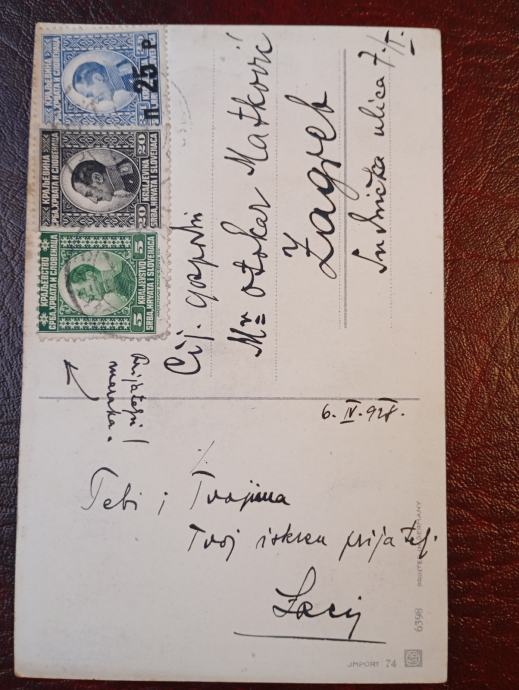 КРАЉЕВИНА
СРБА, ХРВАТА И СЛОВЕНАЦА
25 P
КРАЉЕВИНА
СРБА, ХРВАТА И СЛОВЕНАЦА
20 20
KRALJEVINA
SRBA, HRVATA I SLOVENACA
КРАЉЕВСТВО
СРБА, ХРВАТА И СЛОВЕНАЦА
5 5
KRALJEVSTVO
SRBA, HRVATA I SLOVENACA
Cij. gospodin
Mr. Otokar Matković
Zagreb
ulica 7/II.
Prijatelju!
maraka.
6. IV. 928.
Tebi i Tvojima
Tvoj iskren prijatelj.
PRINTED IN GERMANY
6398
IMPORT 74